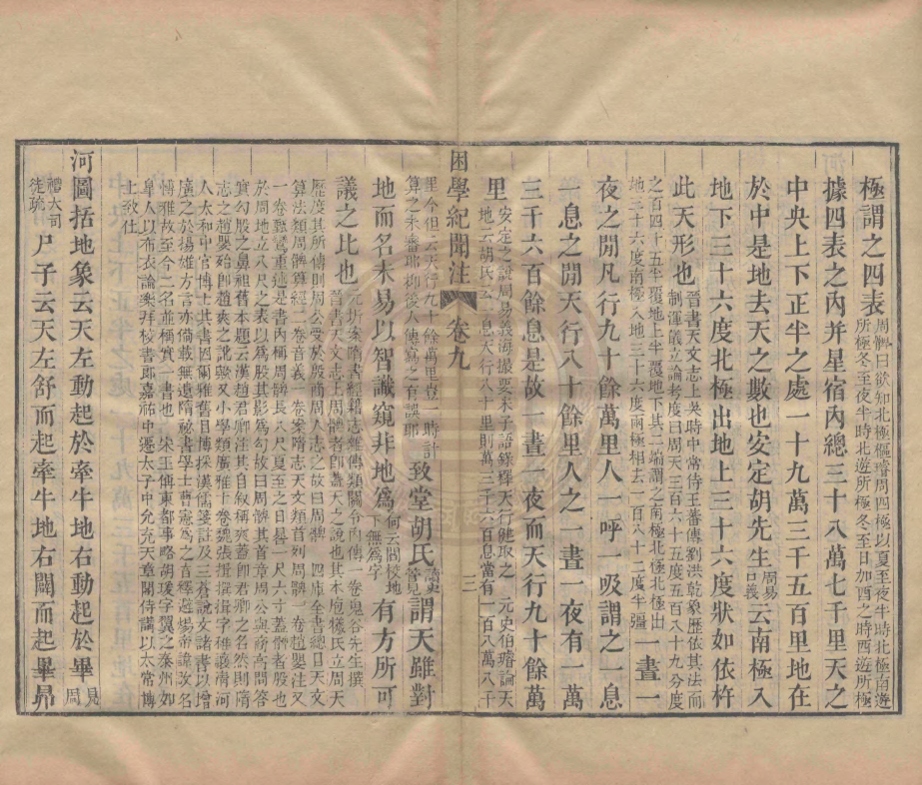 極謂之四表周髀曰欲知北極樞璿周四極以夏至夜半時北極南遊所極冬至夜半時北遊所極冬至日加酉之時西遊所極
據四表之內并星宿內總三十八萬七千里天之
中央上下正半之處一十九萬三千五百里地在
於中是地去天之數也安定胡先生周易口義云南極入
地下三十六度北極出地上三十六度狀如依杵
此天形也晉書天文志上吳時中常侍王蕃傳劉洪乾象歷依其法而制渾儀立論考度曰周天三百六十五度五百八十九分度
之百四十五半覆地上半覆地下其二端謂之南極北極北極出地三十六度南極入地三十六度兩極相去一百八十二度半彊一晝一
夜之閒凡行九十餘萬里人一呼一吸謂之一息
一息之閒天行八十餘里人之一晝一夜有一萬
三千六百餘息是故一晝一夜而天行九十餘萬
里安定之說周易義海撮要朱子語錄釋天行健取之 元史伯璿論天地云胡氏云一息天行八十里則萬三千六百息當有一百八萬八千
困學紀聞注 卷九 三
里今但云天行九十餘萬里豈一時計算之未審耶抑後人傳寫之有誤耶致堂胡氏讀史管見謂天雖對
地而名未易以智識窺非地為何云閻校地下無為字有方所可
議之比也元圻案隋書經籍志雜傳類關令內傳一卷鬼谷先生撰 晉書天文志王周髀者即蓋天之說也其本庖犧氏立周天
歷度其所傳則周公受於殷商周人志之故曰周髀 四庫全書總目天文算法類周髀算經二卷音義一卷案隋志天文類首列周髀一卷趙嬰注又
一卷甄鸞重述是書內稱周髀長八尺夏至之日晷一尺六寸蓋髀者股也於周地立八尺之表以為股其影為勾故曰周髀其首章周公與商高問答
實勾股之鼻祖舊本題云漢趙君卿注其自序稱爽蓋即君卿之名然則隋志之趙嬰殆即趙爽之訛歟又小學類廣雅十卷魏張揖撰揖字稚讓淸河
人太和中官博士其書因爾雅舊目博採漢儒箋註及三蒼說文諸書以增廣之於揚雄方言亦備載無遺隋祕書學士曹憲為之音釋避煬帝諱改名
博雅故至今二名並稱實一書也 宋王偁東都事略胡瑗字翼之泰州如皋人以布衣論樂拜校書郎嘉祐中遷太子中允充天章閣侍講以太常博
士致仕
河圖括地象云天左動起於牽牛地右動起於畢見周
禮大司徒疏尸子云天左舒而起牽牛地右闢而起畢昴